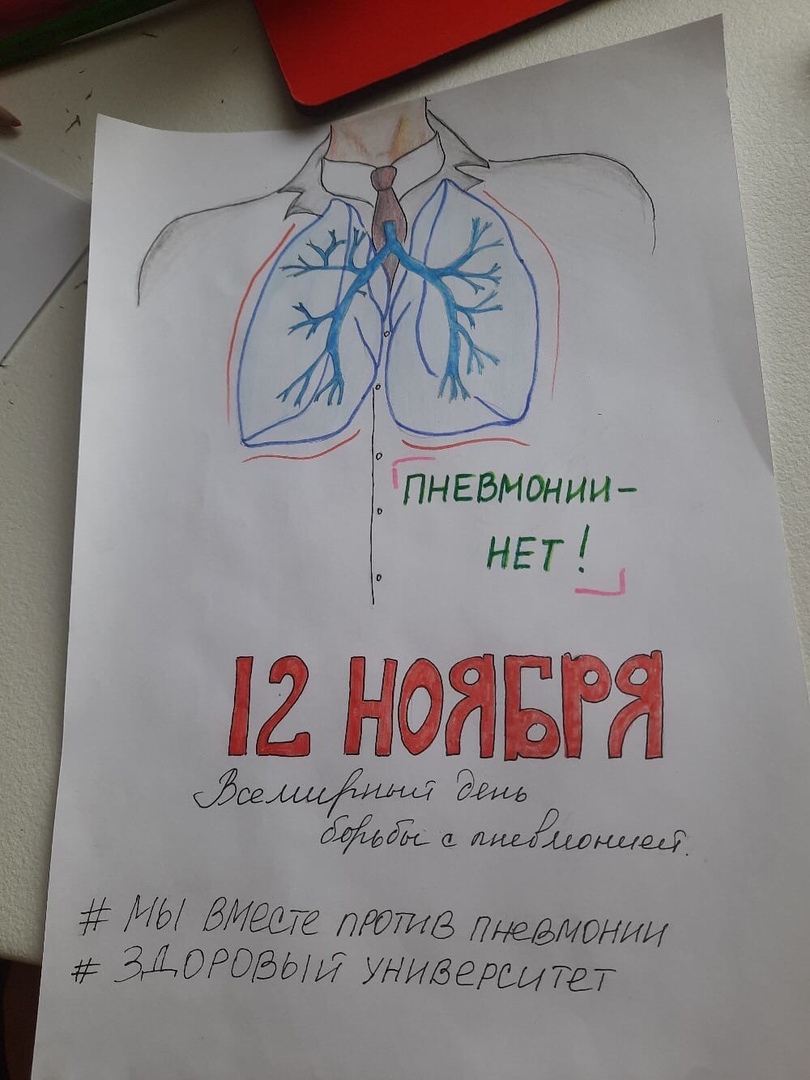 ПНЕВМОНИИ-
НЕТ!
12 НОЯБРЯ
Всемирный день
борьбы с пневмонией.
# МЫ ВМЕСТЕ ПРОТИВ ПНЕВМОНИИ
# ЗДОРОВЫЙ УНИВЕРСИТЕТ